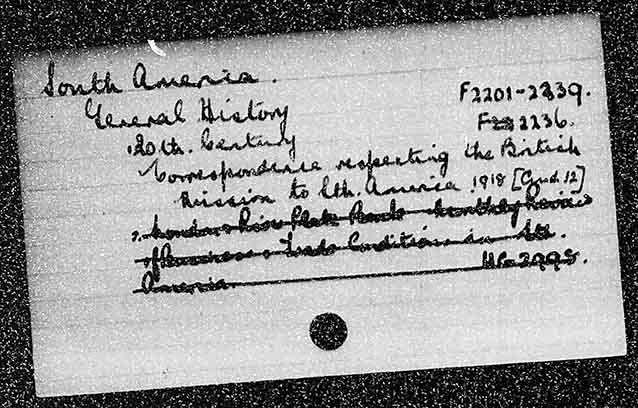 South America.
General History F2201-2239.
20th. Century F22 2236.
Correspondence respecting the British
Mission to Sth. America 1918 [Cmd. 12]
London & River Plate Bank Monthly Review
of Business & Trade Conditions in Sth.
America HC 2998.